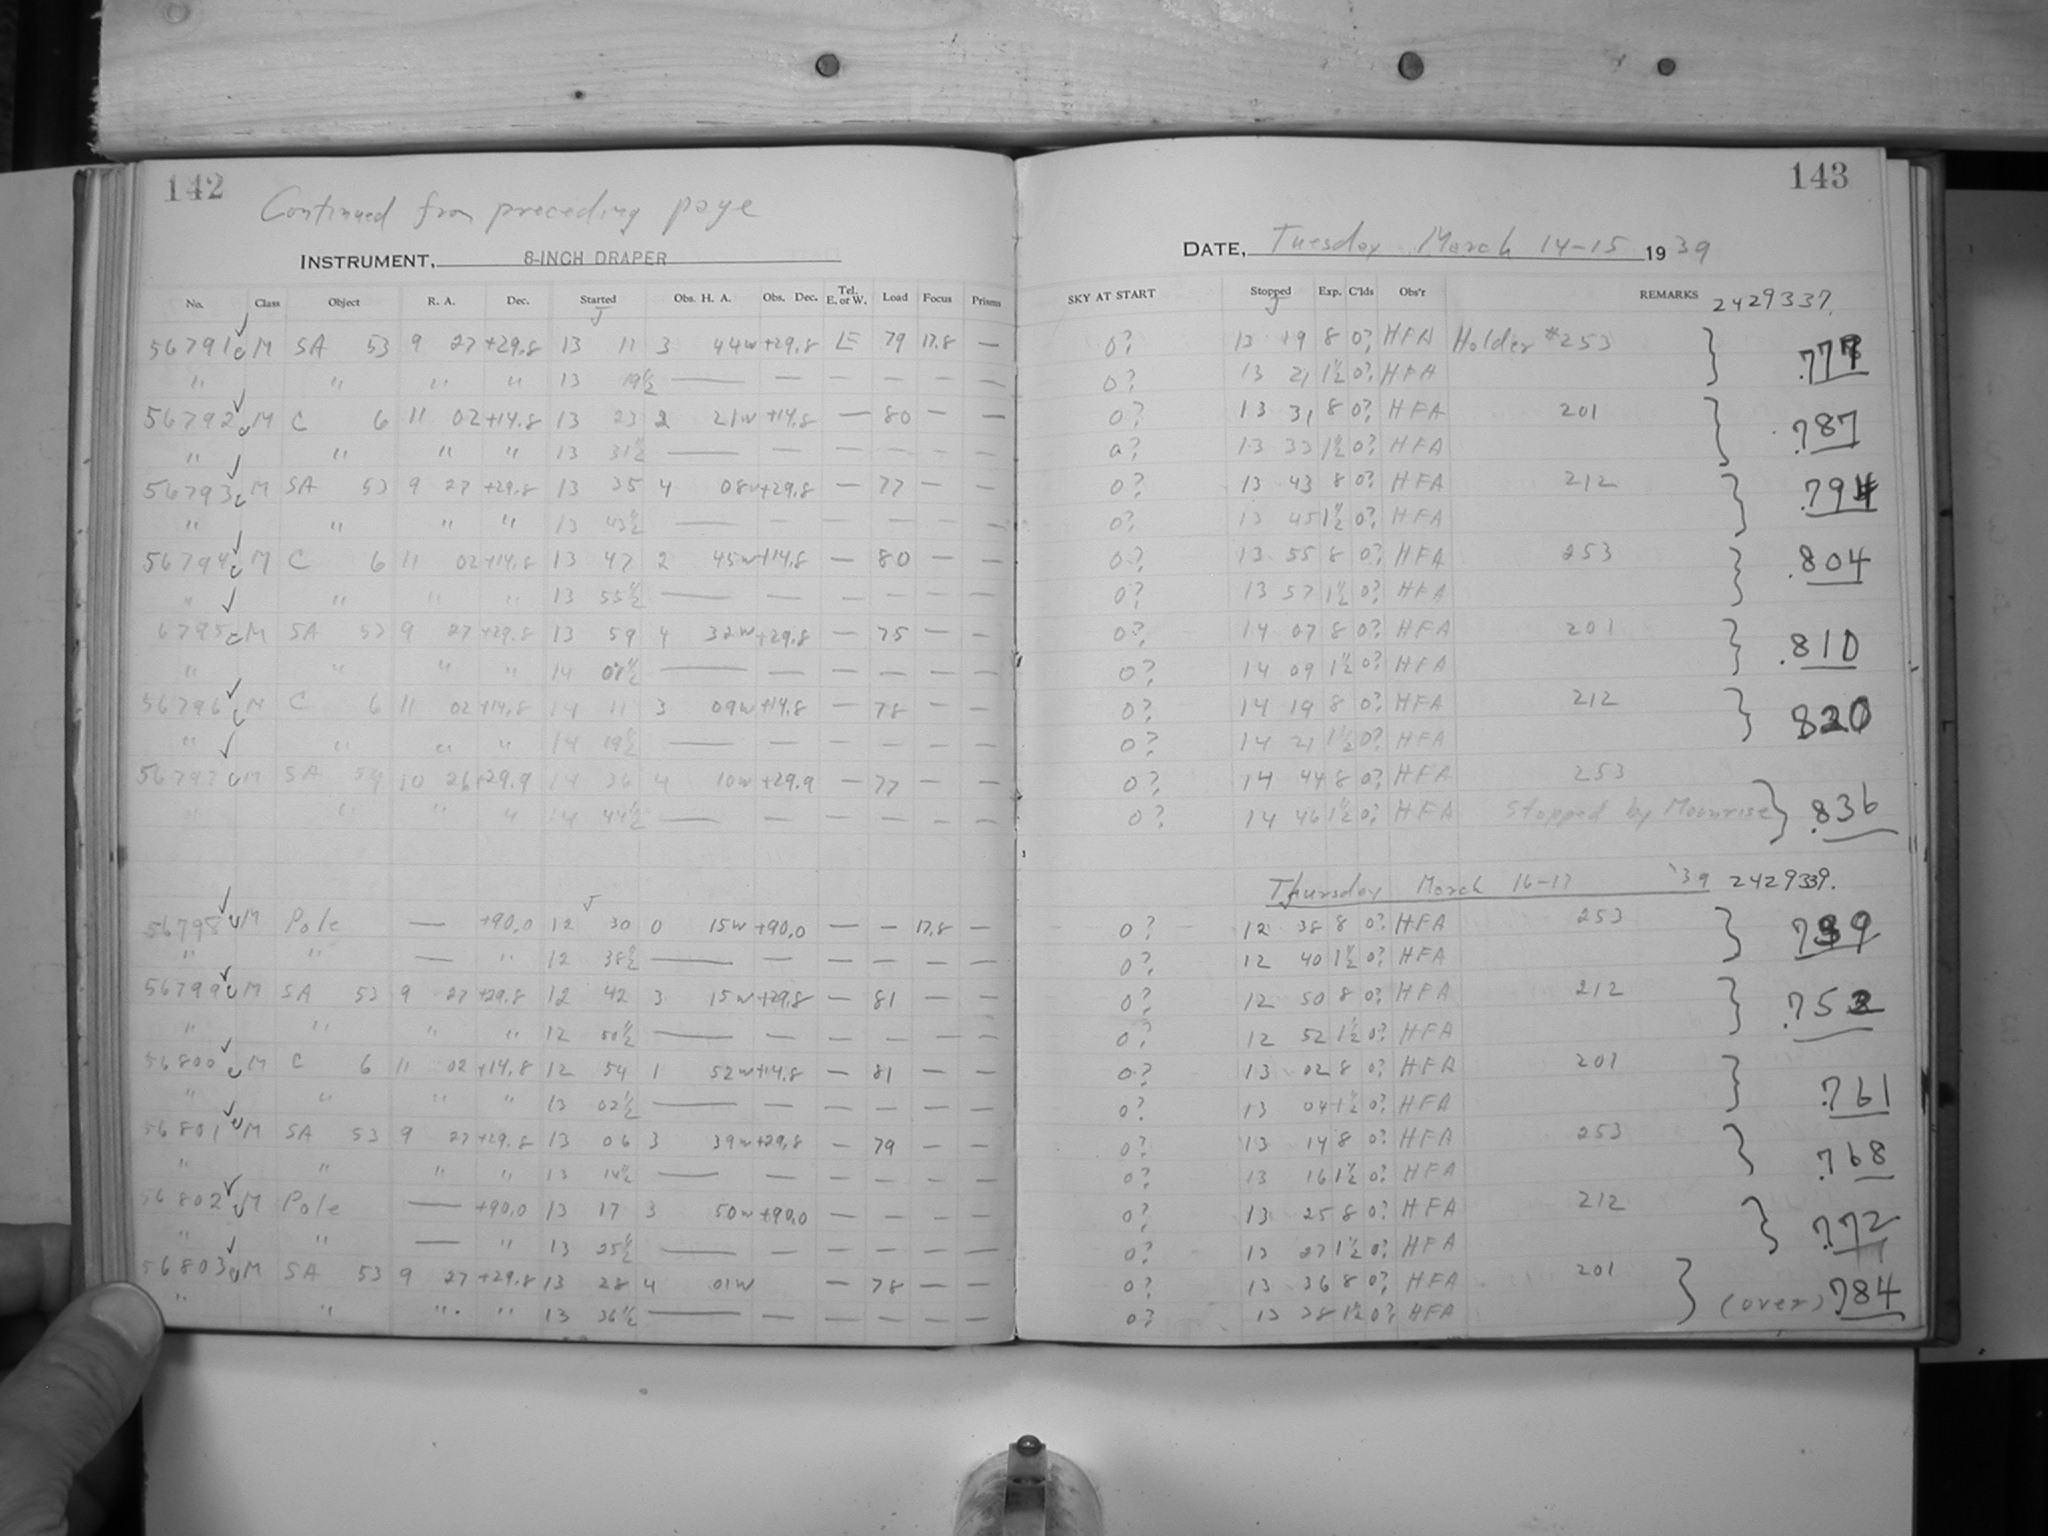 142
Continued from preceding page
INSTRUMENT, 8-INCH DRAPER
No. Class Object R. A. Dec. Started Obs. H. A. Obs. Dec. Tel. E. or W. Load Focus Prisms
J
56791 M SA 53 9 27 +29.8 13 11 3 44w +29.8 LE 79 17.8 —
" " " " 13 19½ — — — — — —
56792 M C 6 11 02 +14.8 13 23 2 21w +14.8 — 80 — —
" " " " 13 31½ — — — — — —
56793 M SA 53 9 27 +29.8 13 35 4 08w +29.8 — 77 — —
" " " " 13 43½ — — — — — —
56794 M C 6 11 02 +14.8 13 47 2 45w +14.8 — 80 — —
" " " " 13 55½ — — — — — —
6795 M SA 53 9 27 +29.8 13 59 4 32w +29.8 — 75 — —
" " " " 14 07½ — — — — — —
56796 M C 6 11 02 +14.8 14 11 3 09w +14.8 — 78 — —
" " " " 14 19½ — — — — — —
56797 M SA 54 10 26 +29.9 14 36 4 10w +29.9 — 77 — —
" " " " 14 44½ — — — — — —
J
56798 M Pole — +90.0 12 30 0 15w +90.0 — — 17.8 —
" " — " 12 38½ — — — — — —
56799 M SA 53 9 27 +29.8 12 42 3 15w +29.8 — 81 — —
" " " " 12 50½ — — — — — —
56800 M C 6 11 02 +14.8 12 54 1 52w +14.8 — 81 — —
" " " " 13 02½ — — — — — —
56801 M SA 53 9 27 +29.8 13 06 3 39w +29.8 — 79 — —
" " " " 13 14½ — — — — — —
56802 M Pole — +90.0 13 17 3 50w +90.0 — — — —
" " — " 13 25½ — — — — — —
56803 M SA 53 9 27 +29.8 13 28 4 01w — 78 — —
" " " " 13 36½ — — — — — —
143
DATE, Tuesday March 14-15 1939
SKY AT START Stopped Exp. C'lds Obs'r REMARKS 2429337.
J
0? 13 19 8 0? HFA Holder #253 .777
0? 13 21 1½ 0? HFA
0? 13 31 8 0? HFA 201 .787
0? 13 33 1½ 0? HFA
0? 13 43 8 0? HFA 212 .794
0? 13 45 1½ 0? HFA
0? 13 55 8 0? HFA 253 .804
0? 13 57 1½ 0? HFA
0? 14 07 8 0? HFA 201 .810
0? 14 09 1½ 0? HFA
0? 14 19 8 0? HFA 212 820
0? 14 21 1½ 0? HFA
0? 14 44 8 0? HFA 253
0? 14 46 1½ 0? HFA Stopped by Moonrise .836
Thursday March 16-17 '39 2429339.
0? 12 38 8 0? HFA 253 739
0? 12 40 1½ 0? HFA
0? 12 50 8 0? HFA 212 .752
0? 12 52 1½ 0? HFA
0? 13 02 8 0? HFA 201 .761
0? 13 04 1½ 0? HFA
0? 13 14 8 0? HFA 253 .768
0? 13 16 1½ 0? HFA
0? 13 25 8 0? HFA 212 .772
0? 13 27 1½ 0? HFA
0? 13 36 8 0? HFA 201
0? 13 38 1½ 0? HFA (over) .784